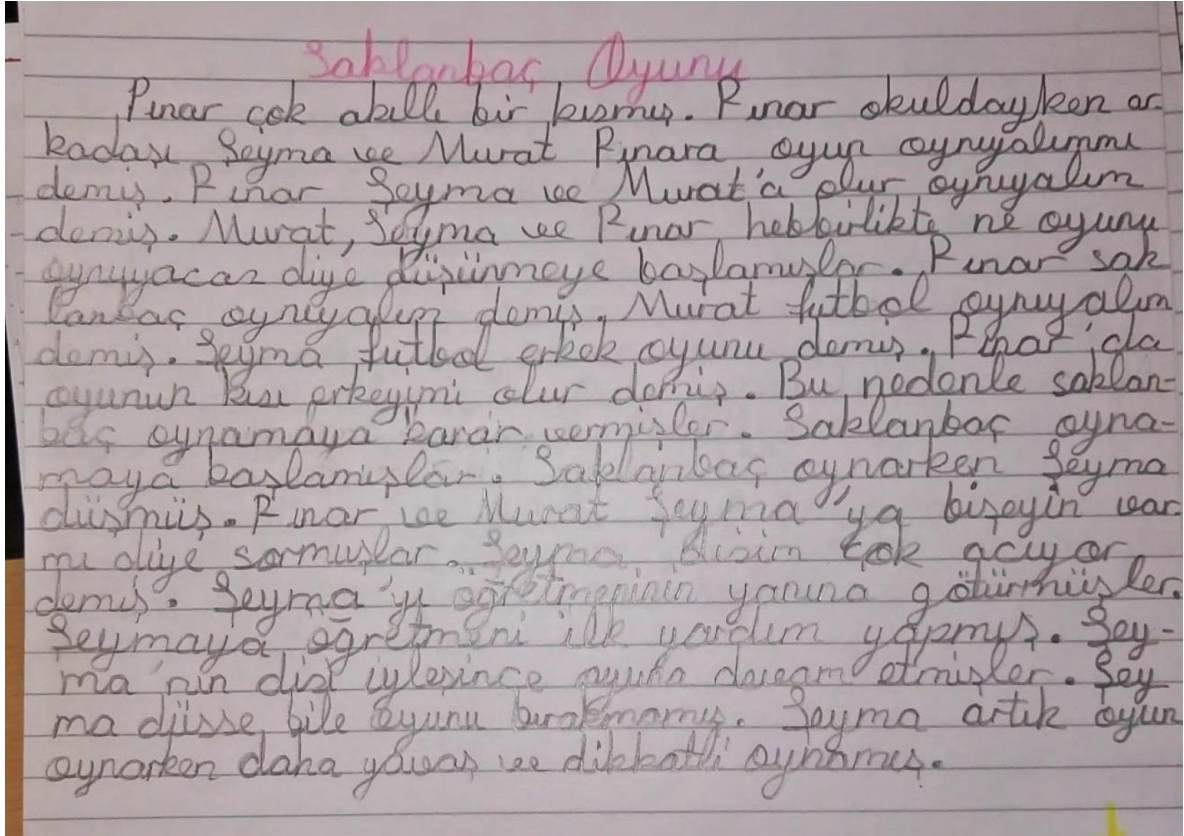 Saklanbaç Oyunu
Pınar çok akıllı bir kısmış. Pınar okuldayken ar-
kadaşı Şeyma ve Murat Pınara oyun oynıyalımmı
demiş. Pınar Şeyma ve Murat'a olur oynıyalım
demiş. Murat, Şeyma ve Pınar hebbirlikte ne oyunu
oynuyacaz diye düşünmeye başlamışlar. Pınar sak
lanbaç oynıyalım demiş. Murat futbol oynıyalım
demiş. Şeyma futbol erkek oyunu demiş. Pınar'da
oyunun kısı erkeyimi olur demiş. Bu nedenle saklan-
baç oynamaya karar vermişler. Saklanbaç oyna-
maya başlamışlar. Saklanbaç oynarken Şeyma
düşmüş. Pınar ve Murat Şeyma'ya bişeyin var
mı diye sormuşlar. Şeyma disim çok acıyor
demiş. Şeyma'yı öğretmeninin yanına götürmüşler.
Şeymaya öğretmeni ilk yardım yapmış. Şey-
ma'nın disi iylesince oyuna devam etmişler. Şey
ma düsse bile oyunu bırakmamış. Şeyma artık oyun
oynarken daha yavaş ve dikkatli oynamış.